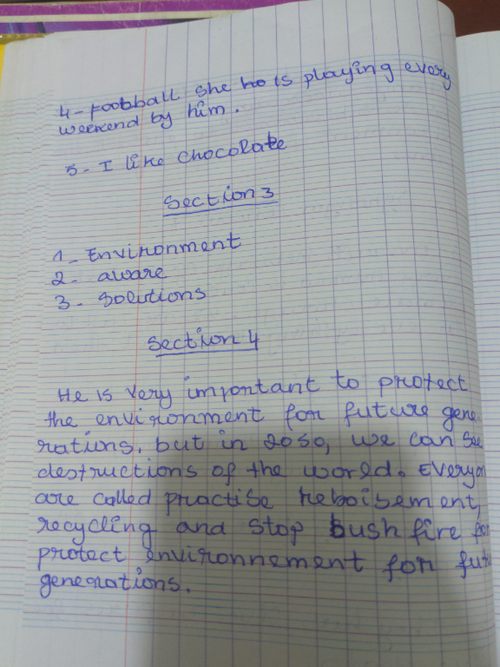 4- football she ho is playing every
weekend by him.
5- I like chocolate
Section 3
1- Environment
2- aware
3- Solutions
Section 4
He is very important to protect
the environment for future gene
rations. but in 2050, we can see
destructions of the world. Everyon
are called practise reboisement,
recycling and stop bush fire for
protect environnement for futu
generations.